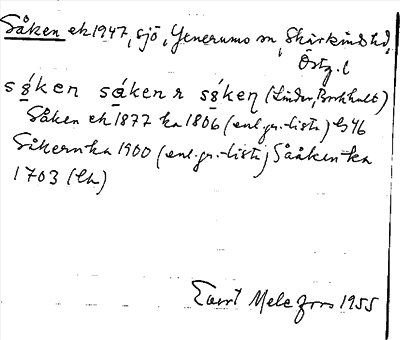 Såken ek 1947, sjö, Yxnerums sn, Skärkinds hd,
Östg. l
såken såken r såken (Linder, Borkhult)
Såken ek 1877 ka 1806 (enl. gr.-lista) Gs 46
Såkern ka 1900 (enl. gr.-lista) Sååken ka
1703 (la)
Evert Melefors 1955